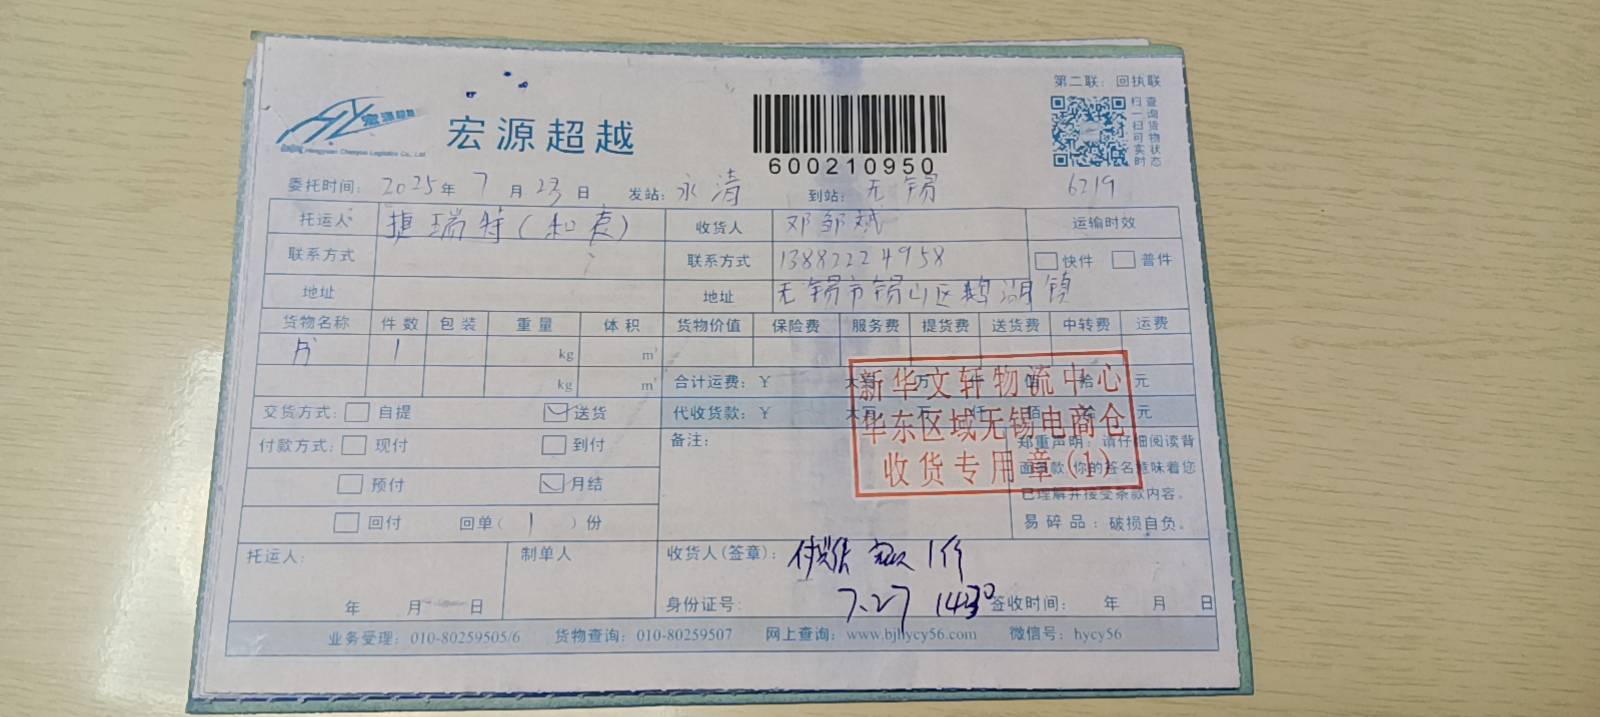 第二联：回执联
宏源超越
Hongyuan Chaoyue Logistics Co., Ltd
宏源超越
600210950
扫一扫可实时
查询货物状态
委托时间：2025年7月23日 发站：永清 到站：无锡 6219
托运人 捷瑞特（和 ） 收货人 邓邹斌 运输时效
联系方式 联系方式 13882224958 快件 普件
地址 地址 无锡市锡山区鹅湖镇
货物名称 件数 包装 重量 体积 货物价值 保险费 服务费 提货费 送货费 中转费 运费
书 1 kg m³
kg m³ 合计运费：￥ 大写 万 仟 佰 拾 元
交货方式： 自提 送货 代收货款：￥ 大写 万 仟 佰 拾 元
付款方式： 现付 到付 备注：
预付 月结
回付 回单（1）份
郑重声明：请仔细阅读背
面条款，你的签名意味着您
已理解并接受条款内容。
易碎品：破损自负。
新华文轩物流中心
华东区域无锡电商仓
收货专用章(1)
托运人： 制单人 收货人(签章)： 1件
年 月 日 身份证号： 7.27 1430 签收时间： 年 月 日
业务受理：010-80259505/6 货物查询：010-80259507 网上查询：www.bjhycy56.com 微信号：hycy56